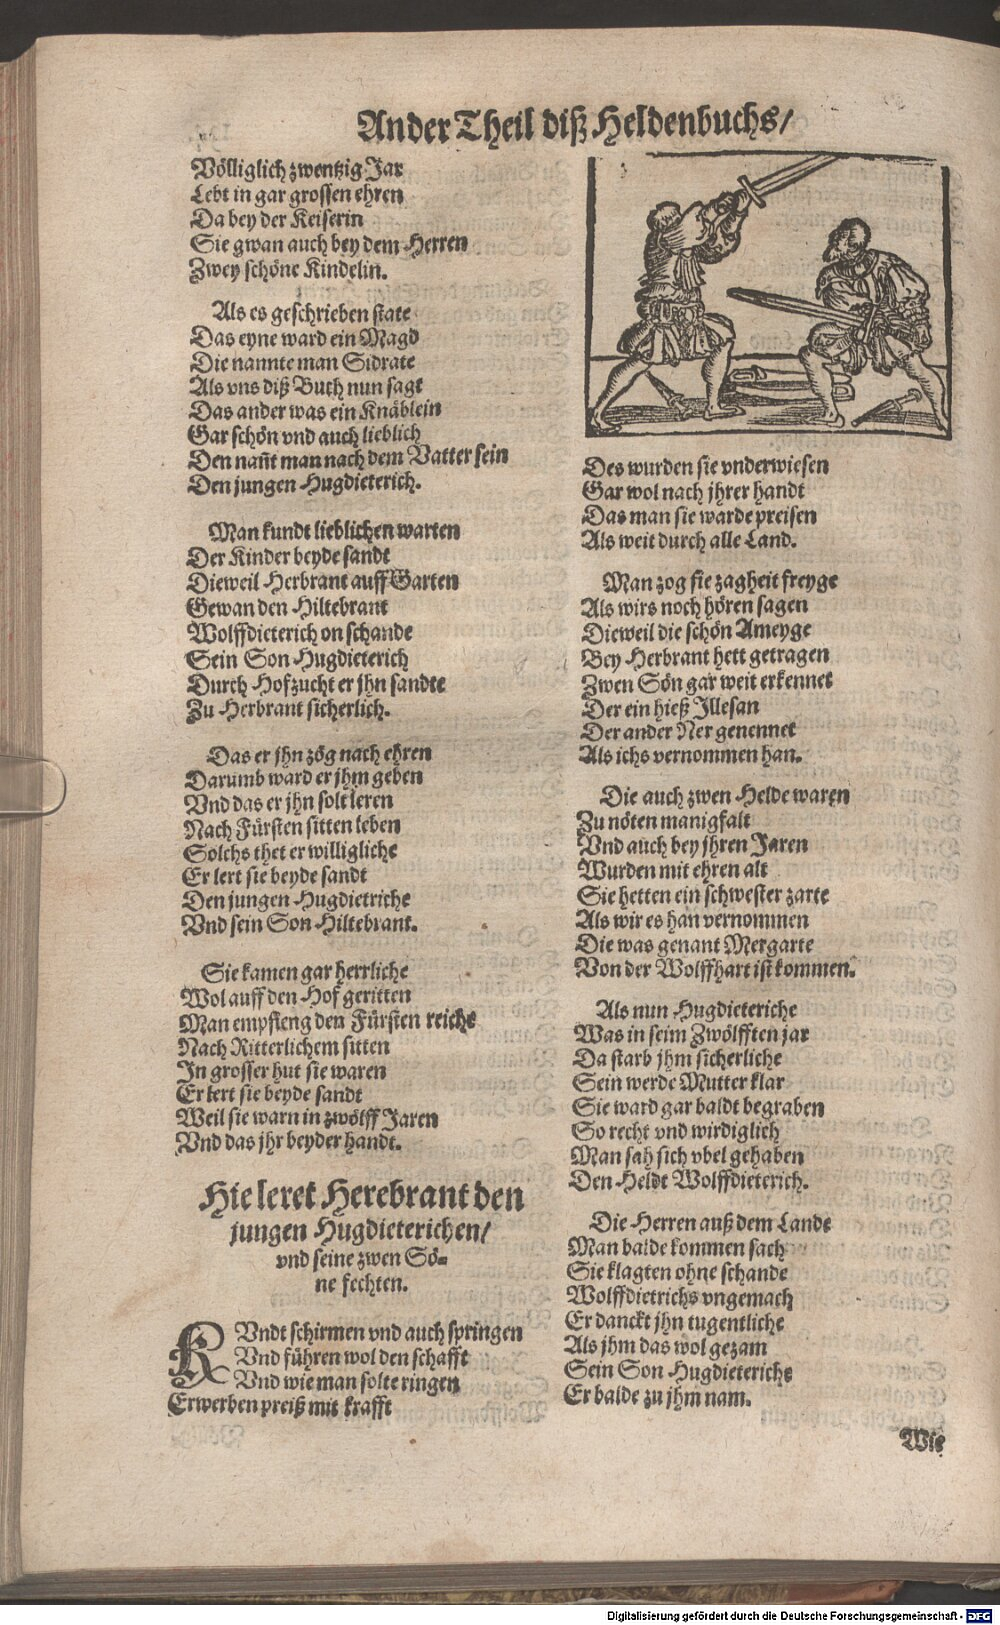 Ander Theil diß Heldenbuchs/
Völliglich zwentzig Jar
Lebt in gar grossen ehren
Da bey der Keiserin
Sie gwan auch bey dem Herren
Zwey schöne Kindelin.
Als es geschrieben state
Das eyne ward ein Magd
Die nannte man Sidrate
Als vns diß Buch nun sagt
Das ander was ein Knäblein
Gar schön vnd auch lieblich
Den nañt man nach dem Vatter sein
Den jungen Hugdieterich.
Man kundt lieblichen warten
Der Kinder beyde sandt
Dieweil Herbrant auff Garten
Gewan den Hiltebrant
Wolffdieterich on schande
Sein Son Hugdieterich
Durch Hofzucht er jhn sandte
Zu Herbrant sicherlich.
Das er jhn zög nach ehren
Darumb ward er jhm geben
Vnd das er jhn solt leren
Nach Fürsten sitten leben
Solchs thet er willigliche
Er lert sie beyde sandt
Den jungen Hugdietriche
Vnd sein Son Hiltebrant.
Sie kamen gar herrliche
Wol auff den Hof geritten
Man empfieng den Fürsten reiche
Nach Ritterlichem sitten
In grosser hut sie waren
Er lert sie beyde sandt
Weil sie warn in zwölff Jaren
Vnd das jhr beyder handt.
Hie leret Herebrant den
jungen Hugdieterichen/
vnd seine zwen Sö-
ne fechten.
KVndt schirmen vnd auch springen
Vnd führen wol den schafft
Vnd wie man solte ringen
Erwerben preiß mit krafft
Des wurden sie vnderwiesen
Gar wol nach jhrer handt
Das man sie warde preisen
Als weit durch alle Land.
Man zog sie zagheit freyge
Als wirs noch hören sagen
Dieweil die schön Ameyge
Bey Herbrant hett getragen
Zwen Sön gar weit erkennet
Der ein hieß Jllesan
Der ander Ner genennet
Als ichs vernommen han.
Die auch zwen Helde waren
Zu nöten manigfalt
Vnd auch bey jhren Jaren
Wurden mit ehren alt
Sie hetten ein schwester zarte
Als wir es han vernommen
Die was genant Mergarte
Von der Wolffhart ist kommen.
Als nun Hugdieteriche
Was in seim Zwölfften jar
Da starb jhm sicherliche
Sein werde Mutter klar
Sie ward gar baldt begraben
So recht vnd wirdiglich
Man sah sich vbel gehaben
Den Heldt Wolffdieterich.
Die Herren auß dem Lande
Man balde kommen sach
Sie klagten ohne schande
Wolffdietrichs vngemach
Er danckt jhn tugentliche
Als jhm das wol gezam
Sein Son Hugdieteriche
Er balde zu jhm nam.
Wie
Digitalisierung gefördert durch die Deutsche Forschungsgemeinschaft - DFG